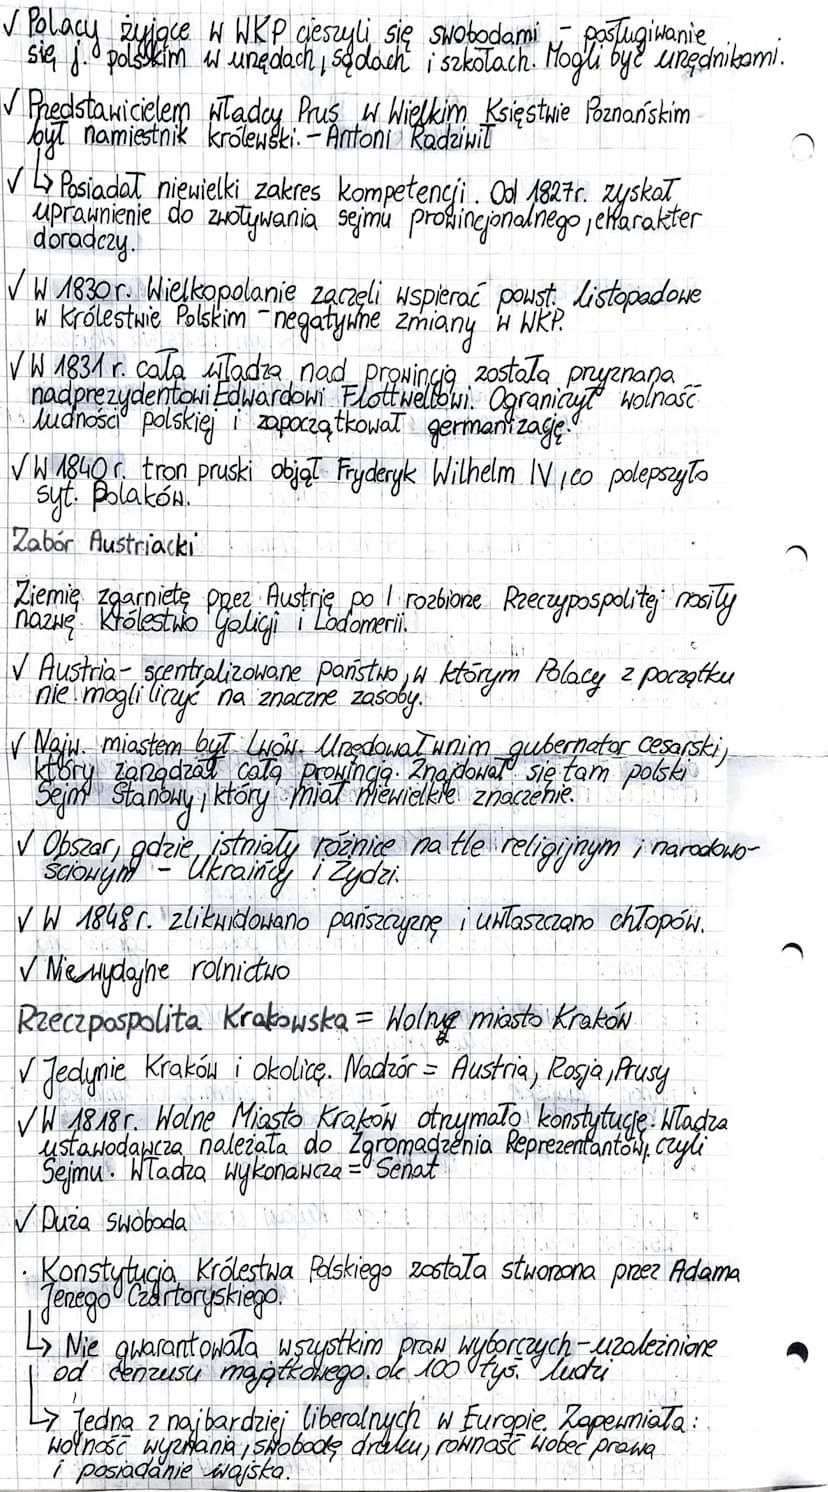 √ Polacy żyjące w WKP cieszyli się swobodami - posługiwanie
się j. polskim w urzędach, sądach i szkołach. Mogli być urzędnikami.
√ Przedstawicielem władcy Prus w Wielkim Księstwie Poznańskim
był namiestnik królewski. - Antoni Radziwił
√ ↳ Posiadał niewielki zakres kompetencji. Od 1827r. zyskał
uprawnienie do zwoływania sejmu prowincjonalnego, charakter
doradczy.
√ W 1830r. Wielkopolanie zaczęli wspierać powst. listopadowe
w Królestwie Polskim - negatywne zmiany w WKP.
√ W 1831 r. całą władzą nad prowincją została przyznana
nadprezydentowi Edwardowi Flottwellowi. Ograniczył wolność
ludności polskiej i zapoczątkował germanizację.
√ W 1840 r. tron pruski objął Fryderyk Wilhelm IV, co polepszyło
syt. Polaków.
Zabór Austriacki
Ziemię zgarniętę przez Austrię po I rozbiorze Rzeczypospolitej nosiły
nazwę Królestwo Galicji i Lodomerii.
√ Austria - scentralizowane państwo, w którym Polacy z początku
nie mogli liczyć na znaczne zasoby.
√ Najw. miastem był Lwów. Urzędował w nim gubernator cesarski,
który zarządzał całą prowincją. Znajdował się tam polski
Sejm Stanowy, który miał niewielkie znaczenie.
√ Obszar, gdzie istniały różnice na tle religijnym i narodowo-
ściowym - Ukraińcy i Żydzi.
√ W 1848r. zlikwidowano pańszczyznę i uwłaszczano chłopów.
√ Niewydajne rolnictwo
Rzeczpospolita Krakowska = Wolne miasto Kraków
√ Jedynie Kraków i okolicę. Nadzór = Austria, Rosja, Prusy
√ W 1818r. Wolne Miasto Kraków otrzymało konstytucję. Władza
ustawodawcza należała do Zgromadzenia Reprezentantów, czyli
Sejmu. Władza wykonawcza = Senat
√ Duża swoboda
· Konstytucja Królestwa Polskiego została stworzona przez Adama
Jerzego Czartoryskiego.
↳ Nie gwarantowała wszystkim praw wyborczych - uzależnione
od cenzusu majątkowego. ok 100 tyś. ludzi
↳ Jedna z najbardziej liberalnych w Europie. Zapewniała:
wolność wyznania, swobodę druku, równość wobec prawa
i posiadanie wojska.